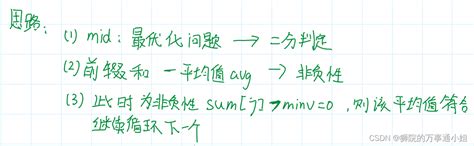 思路：(1) mid：最优化问题 → 二分判定
(2) 前缀和 一平均值 avg → 非负性
(3) 此时为非负性 sum[j] > minv=0，则该平均值符合
继续循环下一个
CSDN @狮院的万事通小姐